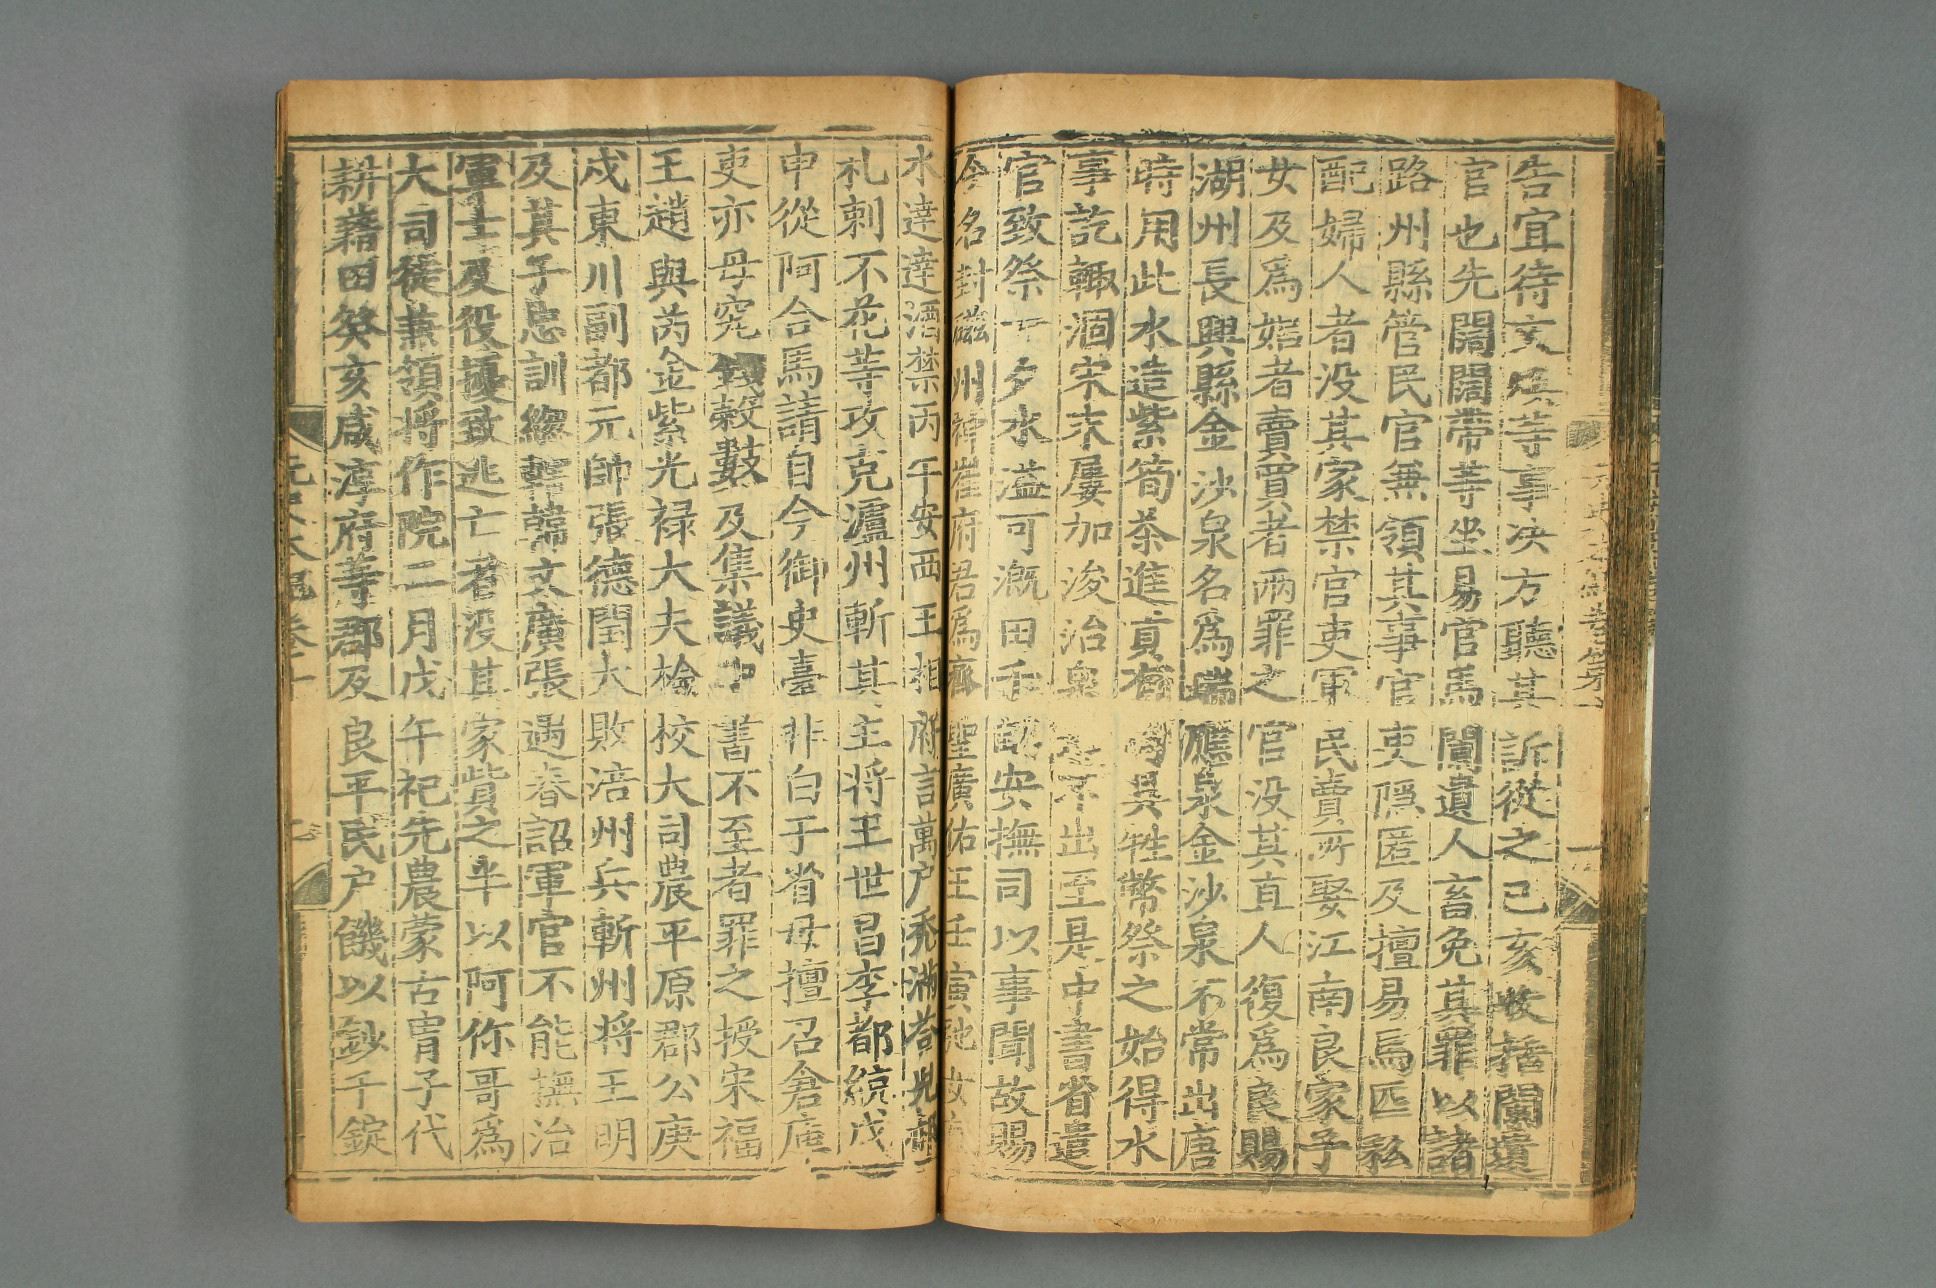 告宜待文煥等事決方聽其訴從之己亥收括闌遺
官也先闊闊帶等坐易官馬闌遺人畜免其罪以諸
路州縣管民官兼領其事官吏隱匿及擅易馬匹私
配婦人者没其家禁官吏軍民賣所娶江南良家子
女及為娼者賣買者兩罪之官没其直人復為良賜
湖州長興縣金沙泉名為瑞應泉金沙泉不常出唐
時用此水造紫筍茶進貢有司具牲幣祭之始得水
事訖輒涸宋末屢加浚治泉迄不出至是中書省遣
官致祭一夕水溢可溉田千畝安撫司以事聞故賜
今名封磁州神崔府君為齊聖廣佑王壬寅弛女
水達達酒禁丙午安西王相府言萬户禿滿荅兒郝
札剌不花等攻克瀘州斬其主将王世昌李都統戊
申從阿合馬請自今御史臺非白于省毋擅召倉庫
吏亦毋究錢穀數及集議中書不至者罪之授宋福
王趙與芮金紫光禄大夫檢校大司農平原郡公庚
戌東川副都元帥張德閏大敗涪州兵斬州将王明
及其子忠訓緫轄韓文廣張遇春詔軍官不能撫治
軍士及役擾致逃亡者没其家貲之半以阿你哥為
大司徒兼領将作院二月戊午祀先農蒙古胄子代
耕藉田癸亥咸淳府等郡及良平民户饑以鈔千錠
元史本紀卷十